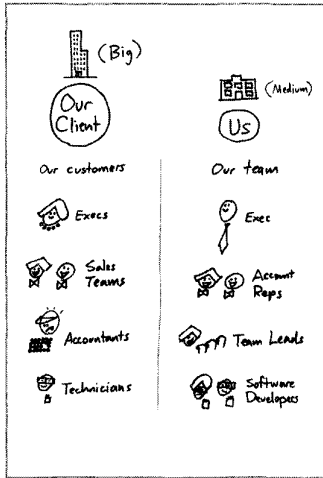 (Big)
Our
Client
Our customers
Execs
Sales
Teams
Accountants
Technicians
(Medium)
Us
Our team
Exec
Account
Reps
Team Leads
Software
Developers